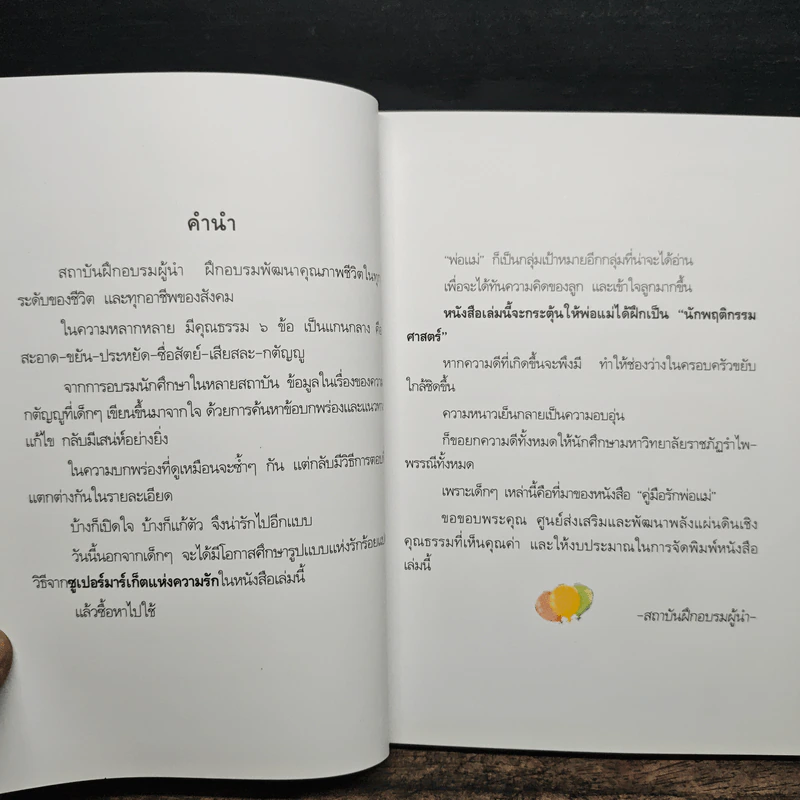 คำนำ
สถาบันฝึกอบรมผู้นำ ฝึกอบรมพัฒนาคุณภาพชีวิตในทุก
ระดับของชีวิต และทุกอาชีพของสังคม
ในความหลากหลาย มีคุณธรรม ๖ ข้อ เป็นแกนกลาง คือ
สะอาด-ขยัน-ประหยัด-ซื่อสัตย์-เสียสละ-กตัญญู
จากการอบรมนักศึกษาในหลายสถาบัน ข้อมูลในเรื่องของความ
กตัญญูที่เด็กๆ เขียนขึ้นมาจากใจ ด้วยการค้นหาข้อบกพร่องและแนวทาง
แก้ไข กลับมีเสน่ห์อย่างยิ่ง
ในความบกพร่องที่ดูเหมือนจะซ้ำๆ กัน แต่กลับมีวิธีการตอบที่
แตกต่างกันในรายละเอียด
บ้างก็เปิดใจ บ้างก็แก้ตัว จึงน่ารักไปอีกแบบ
วันนี้นอกจากเด็กๆ จะได้มีโอกาสศึกษารูปแบบแห่งรักร้อยแปด
วิธีจากซูเปอร์มาร์เก็ตแห่งความรักในหนังสือเล่มนี้
แล้วซื้อหาไปใช้
"พ่อแม่" ก็เป็นกลุ่มเป้าหมายอีกกลุ่มที่น่าจะได้อ่าน
เพื่อจะได้ทันความคิดของลูก และเข้าใจลูกมากขึ้น
หนังสือเล่มนี้จะกระตุ้นให้พ่อแม่ได้ฝึกเป็น "นักพฤติกรรม
ศาสตร์"
หากความดีที่เกิดขึ้นจะพึงมี ทำให้ช่องว่างในครอบครัวขยับ
ใกล้ชิดขึ้น
ความหนาวเย็นกลายเป็นความอบอุ่น
ก็ขอยกความดีทั้งหมดให้นักศึกษามหาวิทยาลัยราชภัฏรำไพ-
พรรณีทั้งหมด
เพราะเด็กๆ เหล่านี้คือที่มาของหนังสือ "คู่มือรักพ่อแม่"
ขอขอบพระคุณ ศูนย์ส่งเสริมและพัฒนาพลังแผ่นดินเชิง
คุณธรรมที่เห็นคุณค่า และให้งบประมาณในการจัดพิมพ์หนังสือ
เล่มนี้
-สถาบันฝึกอบรมผู้นำ-